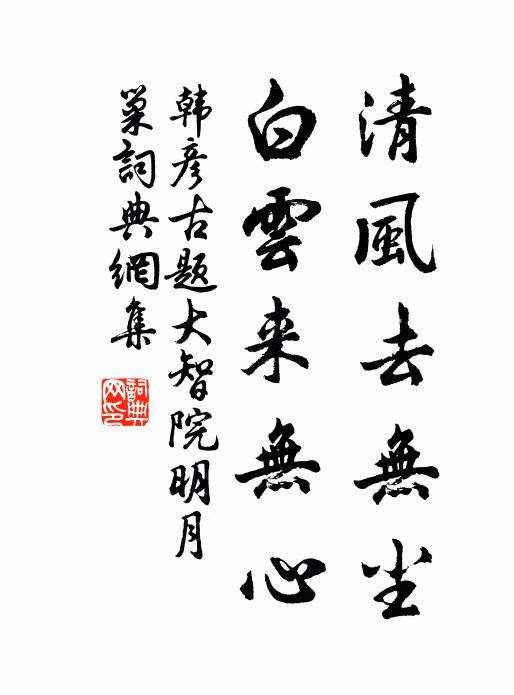 清風去無尘
白雲来無心
韩彦古题大智院明月
巢詞典網集
詞典网印